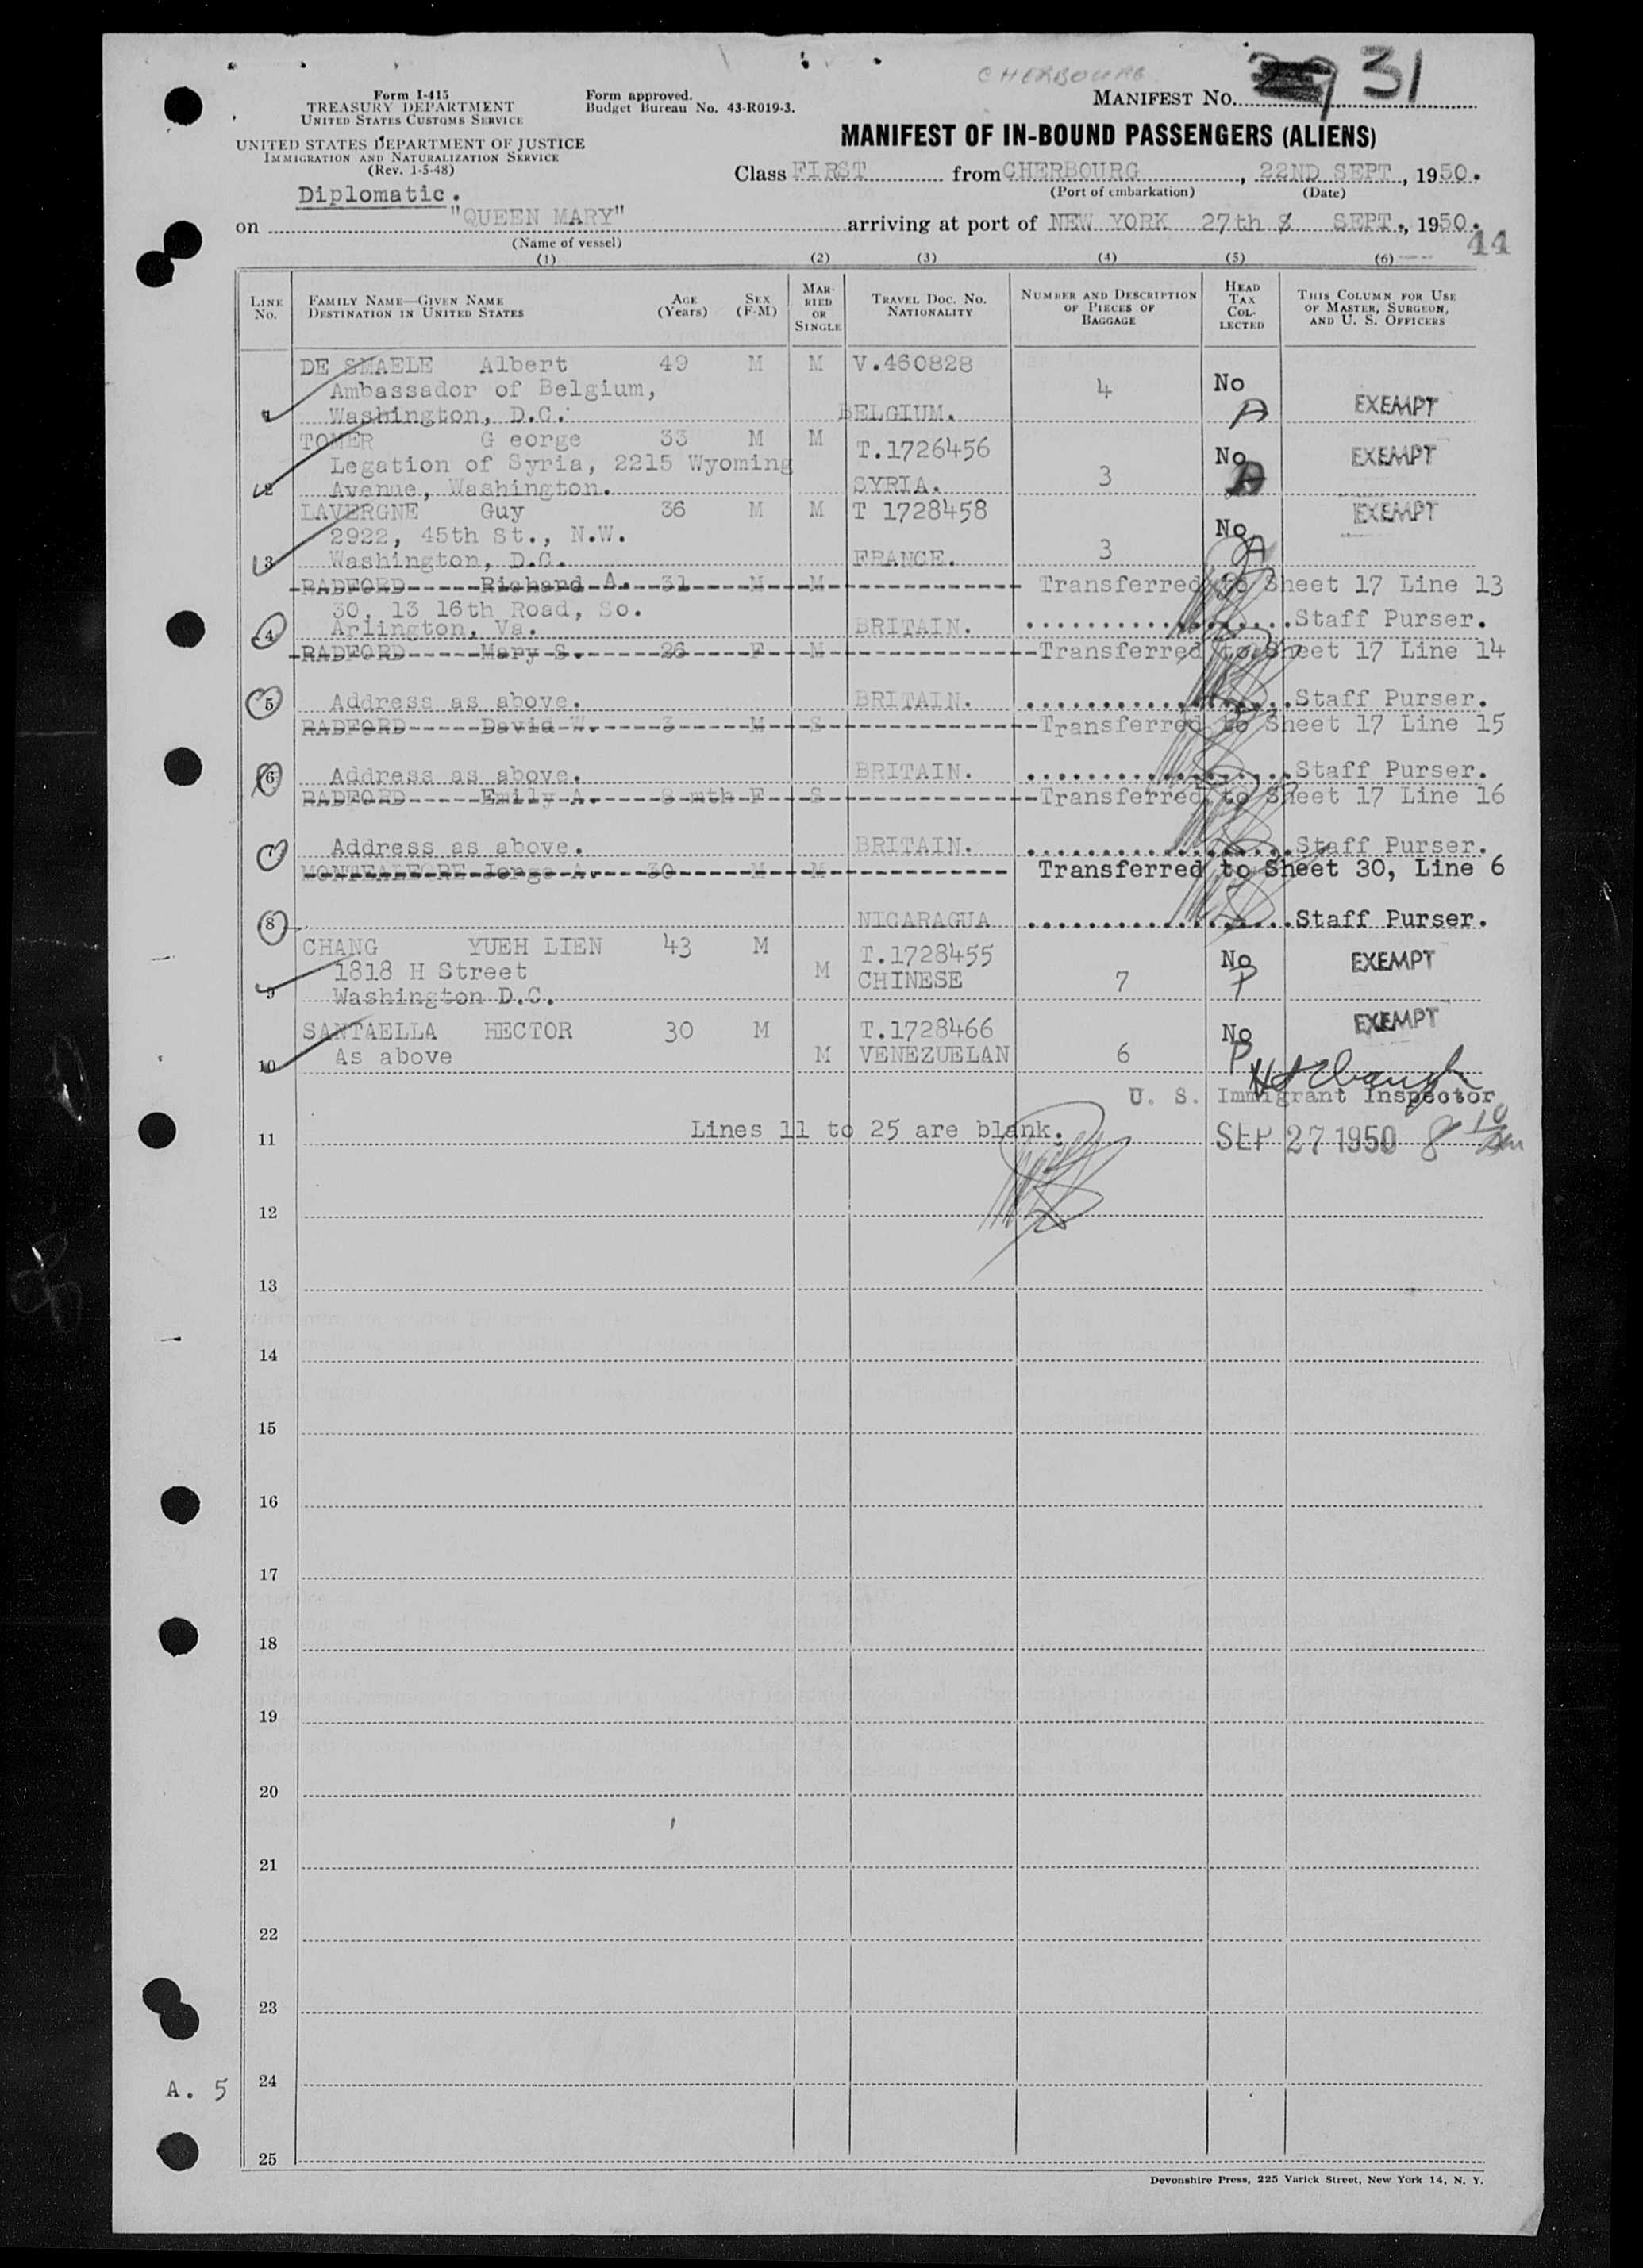 CHERBOURG
31
Form I-415
TREASURY DEPARTMENT
UNITED STATES CUSTOMS SERVICE
Form approved.
Budget Bureau No. 43-R019-3.
MANIFEST NO.
UNITED STATES DEPARTMENT OF JUSTICE
IMMIGRATION AND NATURALIZATION SERVICE
(Rev. 1-5-48)
MANIFEST OF IN-BOUND PASSENGERS (ALIENS)
Class FIRST from CHERBOURG, 22ND SEPT, 1950.
(Port of embarkation) (Date)
Diplomatic.
on "QUEEN MARY" arriving at port of NEW YORK 27th SEPT., 1950.
(Name of vessel)
44
(1) (2) (3) (4) (5) (6)
LINE NO. FAMILY NAME—GIVEN NAME DESTINATION IN UNITED STATES AGE (Years) SEX (F-M) MARRIED OR SINGLE TRAVEL DOC. NO. NATIONALITY NUMBER AND DESCRIPTION OF PIECES OF BAGGAGE HEAD TAX COLLECTED THIS COLUMN FOR USE OF MASTER, SURGEON, AND U. S. OFFICERS
DE SMAELE Albert 49 M M V.460828
Ambassador of Belgium, 4 No
1 Washington, D.C. BELGIUM. A EXEMPT
TOMER G eorge 33 M M T.1726456
Legation of Syria, 2215 Wyoming 3 No EXEMPT
2 Avenue, Washington. SYRIA. A
LAVERGNE Guy 36 M M T 1728458 EXEMPT
2922, 45th St., N.W. 3 No
3 Washington, D.C. FRANCE. A
RADFORD Richard A. 31 M M Transferred to Sheet 17 Line 13
30, 13 16th Road, So.
4 Arlington, Va. BRITAIN. Staff Purser.
RADFORD Mary S. 26 F M Transferred to Sheet 17 Line 14
5 Address as above. BRITAIN. Staff Purser.
RADFORD David W. 3 M S Transferred to Sheet 17 Line 15
6 Address as above. BRITAIN. Staff Purser.
RADFORD Emily A. 8 mth F S Transferred to Sheet 17 Line 16
7 Address as above. BRITAIN. Staff Purser.
MONTEALEGRE Jorge A. 30 M M Transferred to Sheet 30, Line 6
8 NICARAGUA Staff Purser.
CHANG YUEH LIEN 43 M T.1728455 No EXEMPT
1818 H Street M CHINESE 7 P
9 Washington D.C.
SANTAELLA HECTOR 30 M T.1728466 No EXEMPT
10 As above M VENEZUELAN 6 P
U. S. Immigrant Inspector
11 Lines 11 to 25 are blank. SEP 27 1950 8 10 Am
12
13
14
15
16
17
18
19
20
21
22
23
24
A. 5
25
Devonshire Press, 225 Varick Street, New York 14, N. Y.